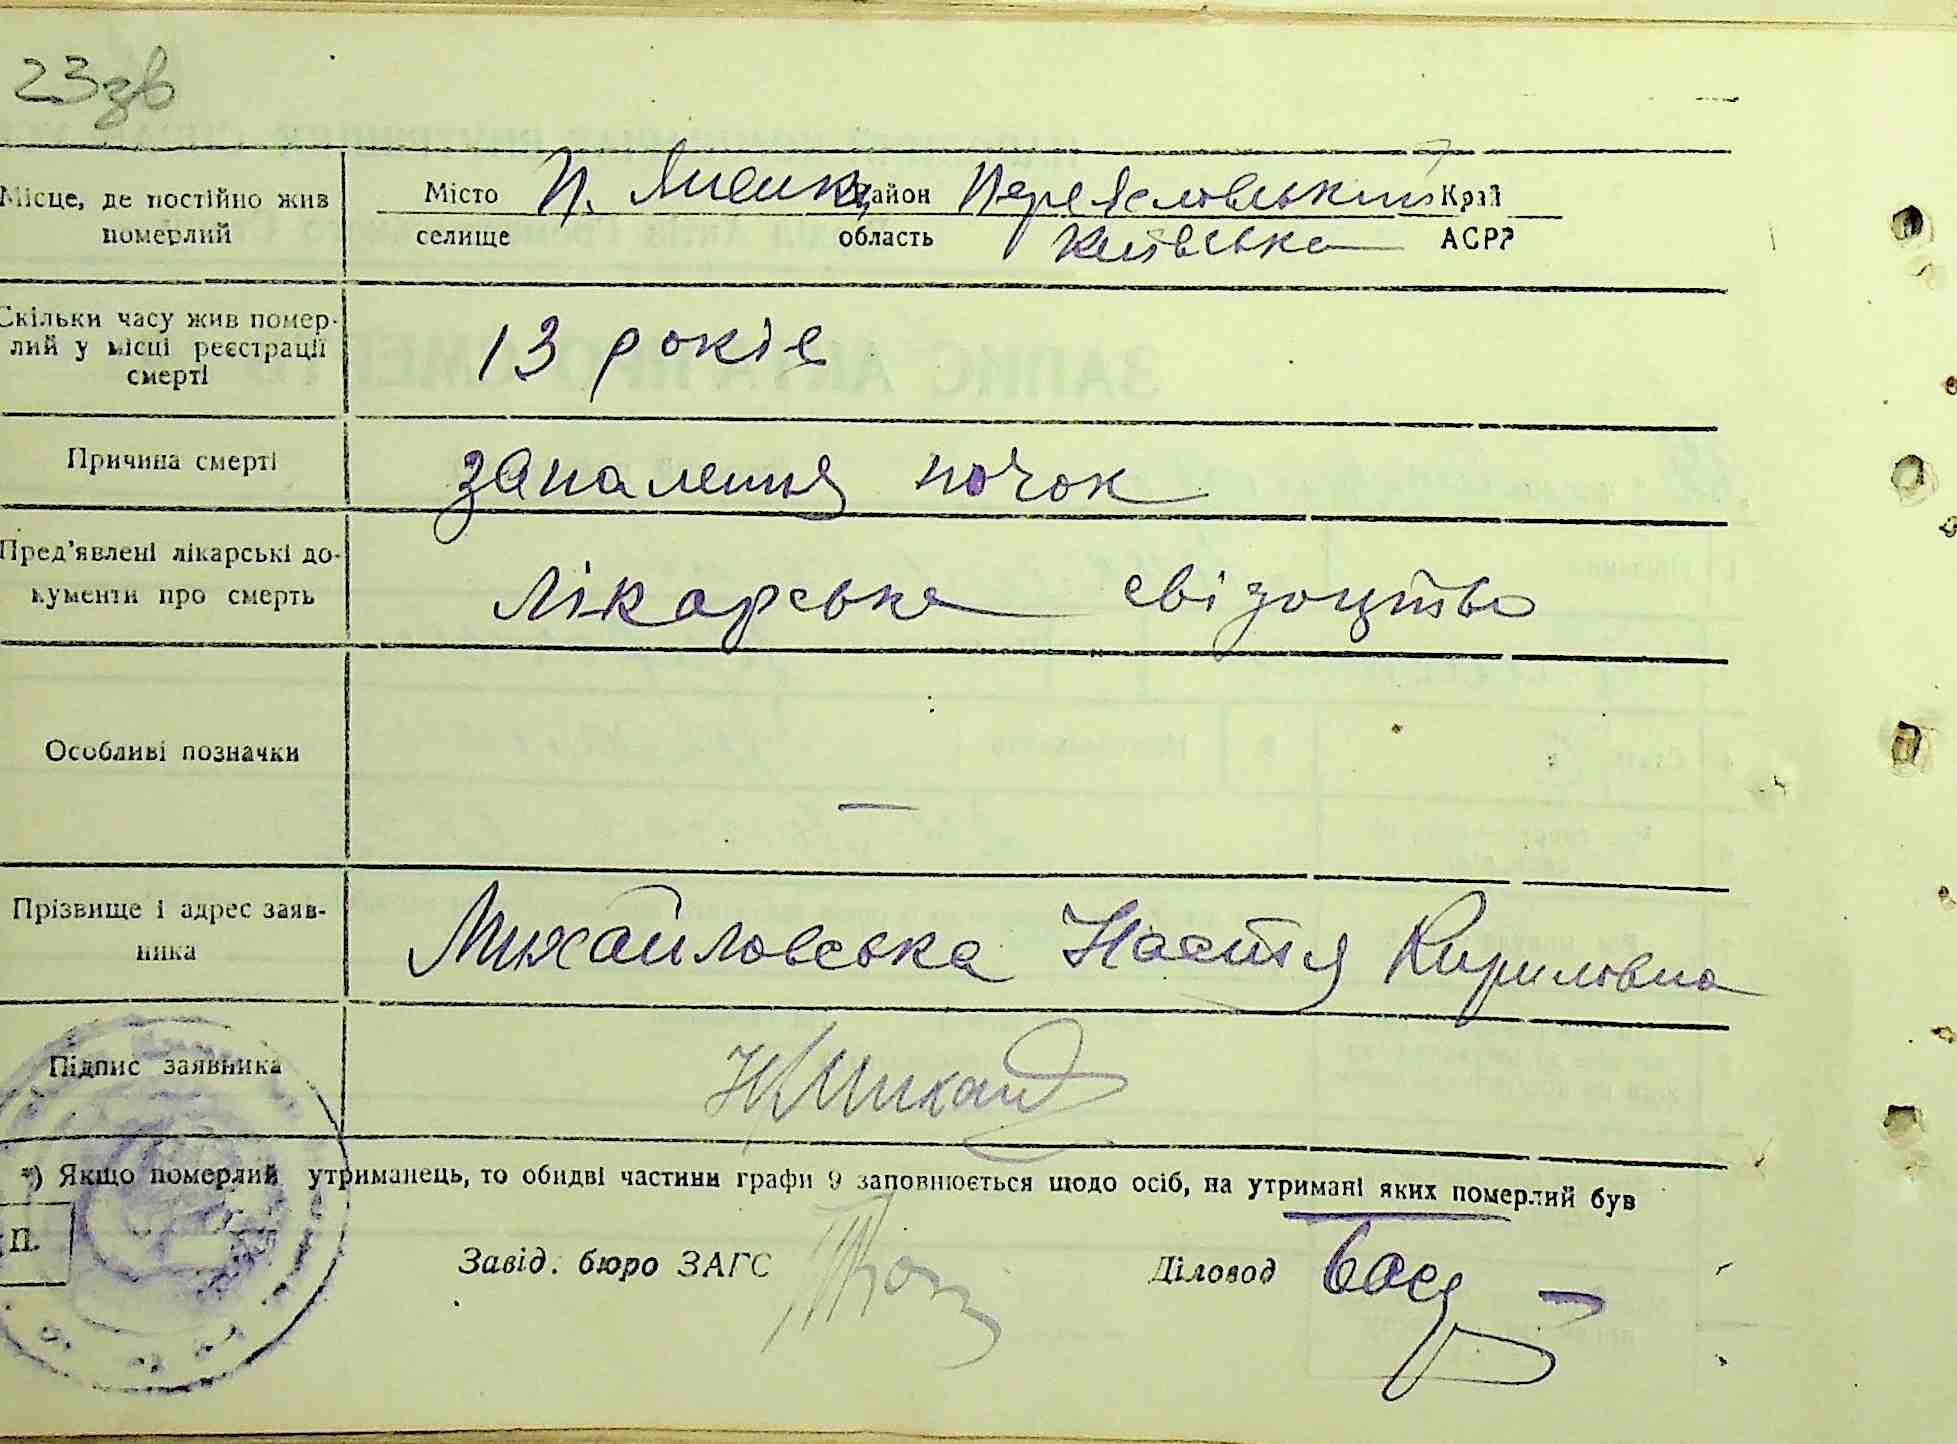 23зв
Місце, де постійно жив померлий
Місто П. Район Переяславський Край
селище область Київська АСРР
Скільки часу жив помер-
лий у місці реєстрації
смерті
13 років
Причина смерті
запалення почок
Пред'явлені лікарські до-
кументи про смерть
лікарське свідоцтво
Особливі позначки
—
Прізвище і адрес заяв-
ника
Михайловська Настія Кириловна
Підпис заявника
*) Якщо померлий утриманець, то обидві частини графи 9 заповнюється щодо осіб, на утримані яких померлий був
П.
Завід. бюро ЗАГС Діловод